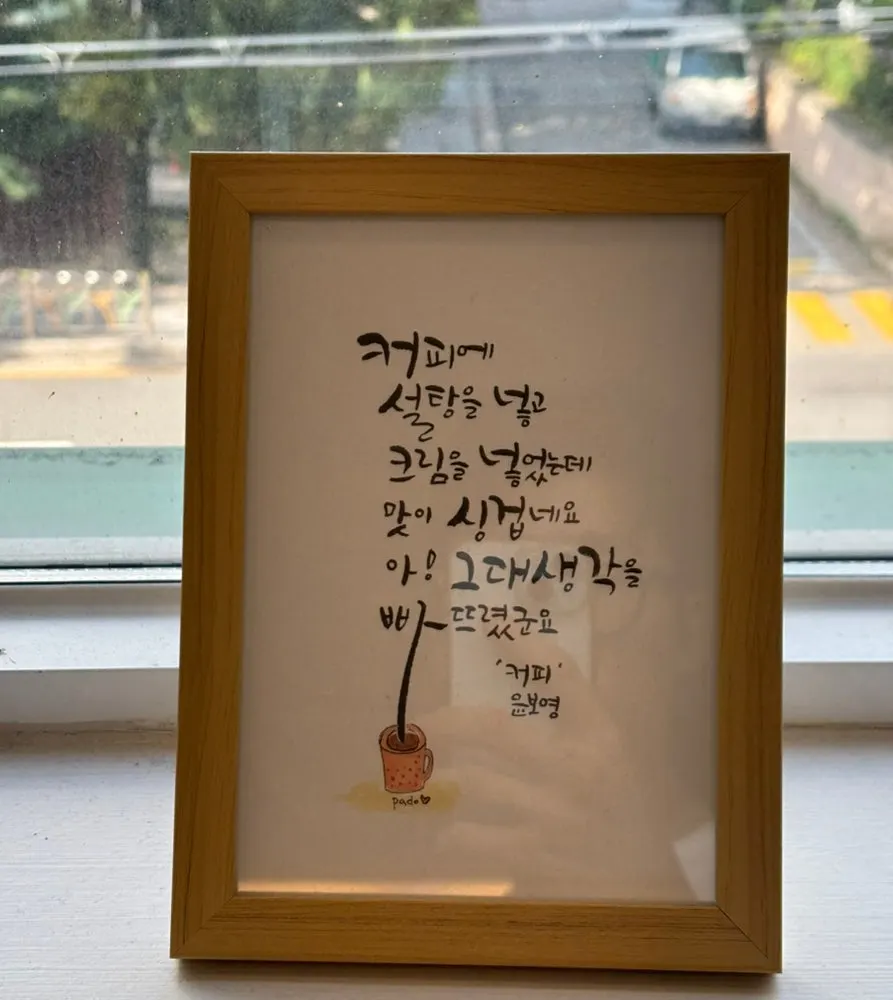 커피에
설탕을 넣고
크림을 넣었는데
맛이 싱겁네요
아! 그대생각을
빠뜨렸군요
'커피'
윤보영
pado♡